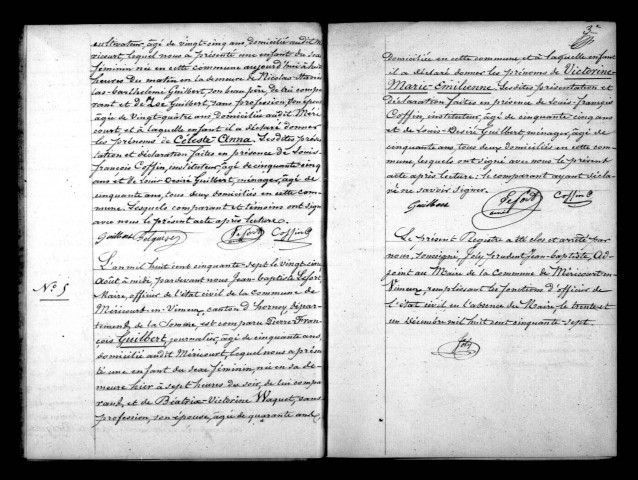 cultivateur, âgé de vingt-cinq ans domicilié audit Mé
ricourt, lequel nous a présenté une enfant du sexe
féminin née en cette commune aujourd'hui à huit
heures du matin en la demeure de Nicolas-Stanis
las-Barthélemi Guilbert, son beau père, de lui compa
rant et de Zoé Guilbert, sans profession, son épouse
âgée de vingt-quatre ans domiciliée audit Méri
court, et à laquelle enfant il a déclaré donner
les prénoms de Céleste-Anna. Lesdites présen
tation et déclaration faites en présence de Louis-
François Coffin, instituteur, âgé de cinquante cinq
ans et de Louis Désiré Guilbert, ménager, âgé de
cinquante ans, tous deux domiciliés en cette com
mune. Lesquels comparant et témoins ont signé
avec nous le présent acte après lecture.
Guilbert Lefort Coffin
N.° 5
L'an mil huit cent cinquante-sept le vingt-cinq
Août, à midi, pardevant nous Jean-baptiste Lefort
Maire, officier de l'état civil de la commune de
Méricourt-en-Vimeu, canton d'hornoy, départ-
tement de la Somme, est comparu Pierre-Fran
çois Guilbert, journalier, âgé de cinquante ans
domicilié audit Méricourt, lequel nous a présen
té une enfant du sexe féminin, née en sa de-
meure hier à sept heures du soir, de lui compa
rant, et de Béatrix-Victorine Waquet, sans
profession, son épouse, âgée de quarante ans
3e
domiciliée en cette commune et à laquelle enfant
il a déclaré donner les prénoms de Victorine-
Marie-Emilienne. Lesdites présentation et
déclaration faites en présence de Louis-françois
Coffin, instituteur, âgé de cinquante cinq ans
et de Louis-Désiré Guilbert, ménager, âgé de
cinquante ans, tous deux domiciliés en cette com
mune, lesquels ont signé avec nous le présent
acte après lecture : le comparant ayant décla
ré ne savoir signer.
Guilbert Lefort Coffin
Le présent Registre a été clos et arrêté par
nous, soussigné, Joly Prudent-Jean-baptiste, Ad-
joint au Maire de la Commune de Méricourt en
Vimeu, remplissant les fonctions d'officier de
l'état civil en l'absence du Maire, le trente et
un Décembre mil huit cent cinquante-sept.
Joly